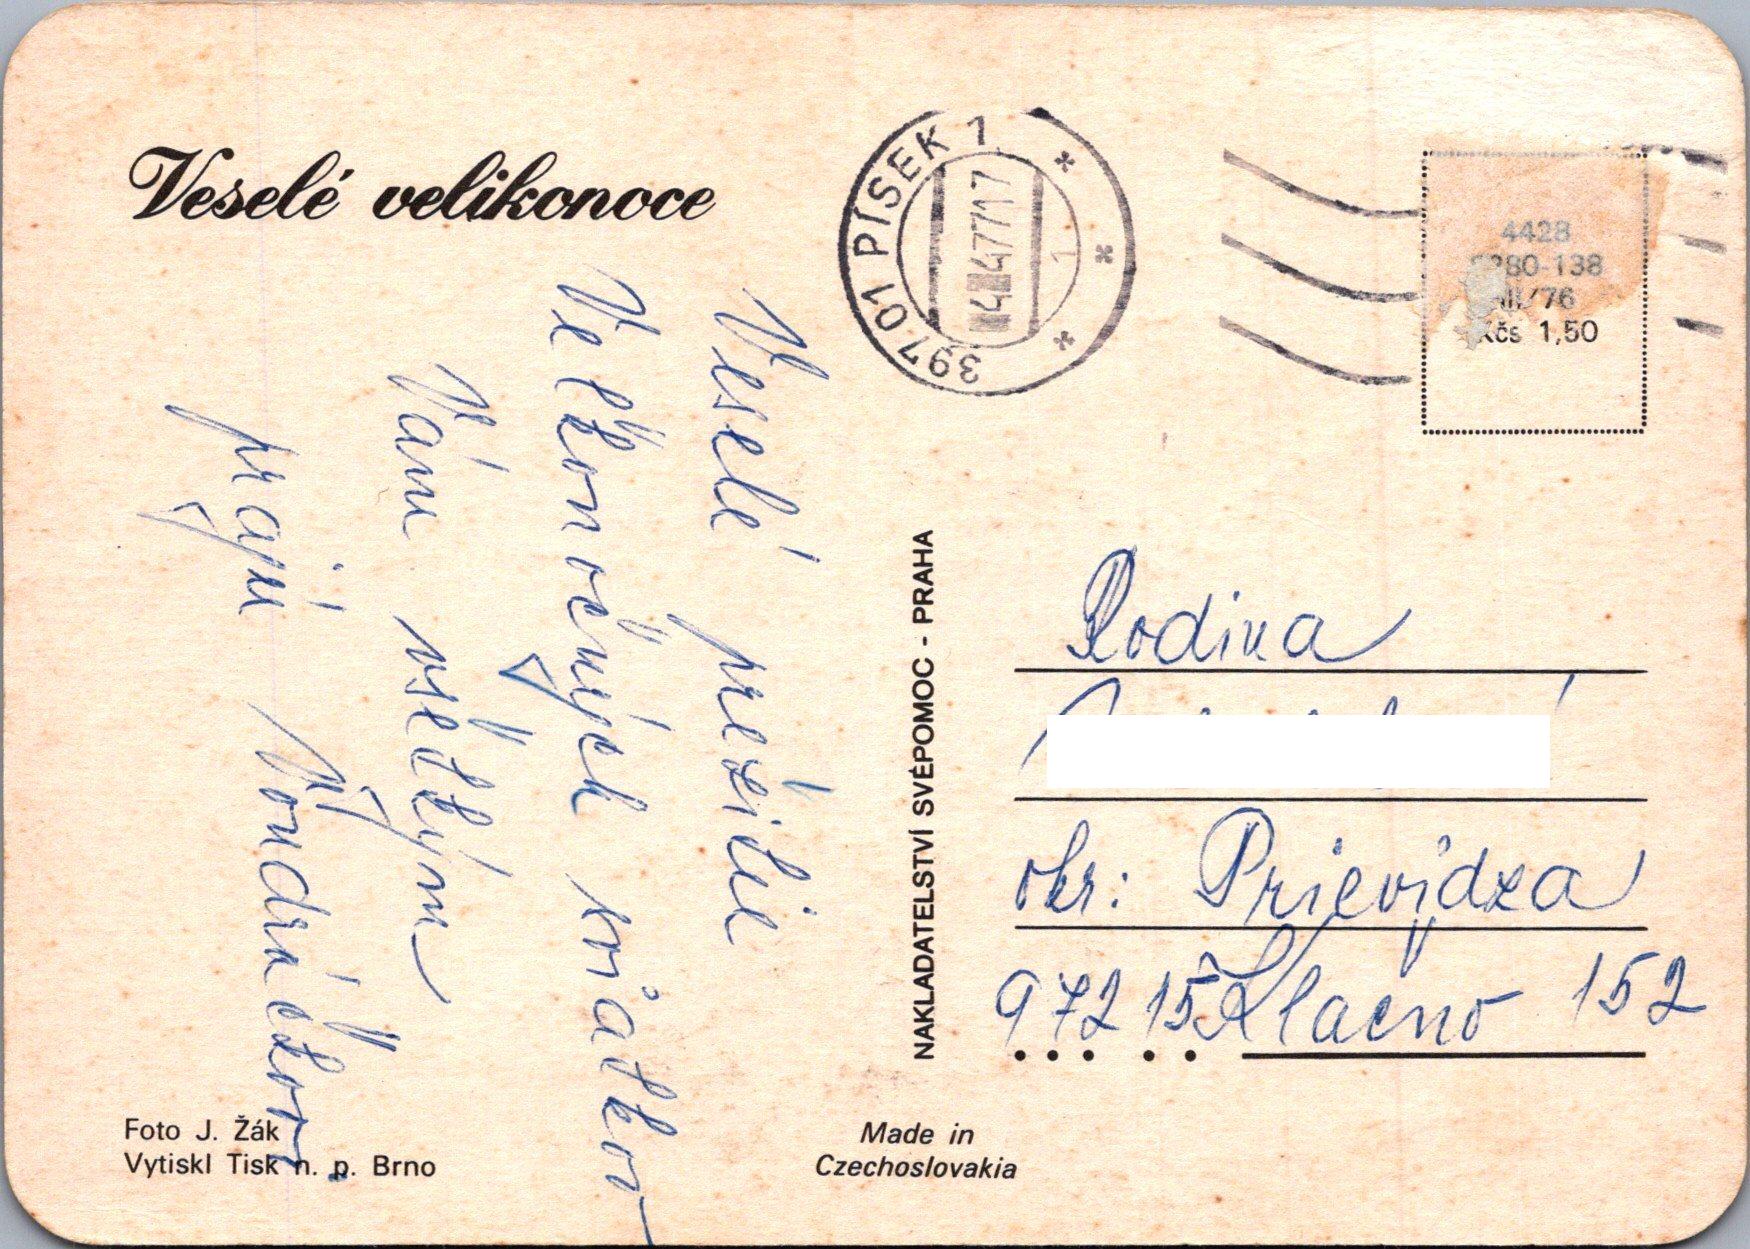 Veselé velikonoce
397 01 PÍSEK 1
4.4.77 17
1
4428
280-138
/76
Kčs 1,50
Veselé prežitie
Veľkonočných sviatkov
Vám všetkým
prajú Vondráčkovi
NAKLADATELSTVÍ SVÉPOMOC - PRAHA
Rodina
okr: Prievidza
972 15 Klačno 152
Foto J. Žák
Vytiskl Tisk n. p. Brno
Made in
Czechoslovakia